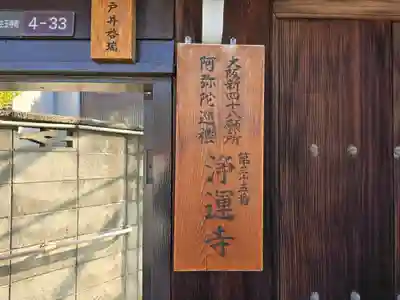 4-33
戸井啓瑞
大阪新四十八願所
阿弥陀巡禮
第三十五番
浄運寺